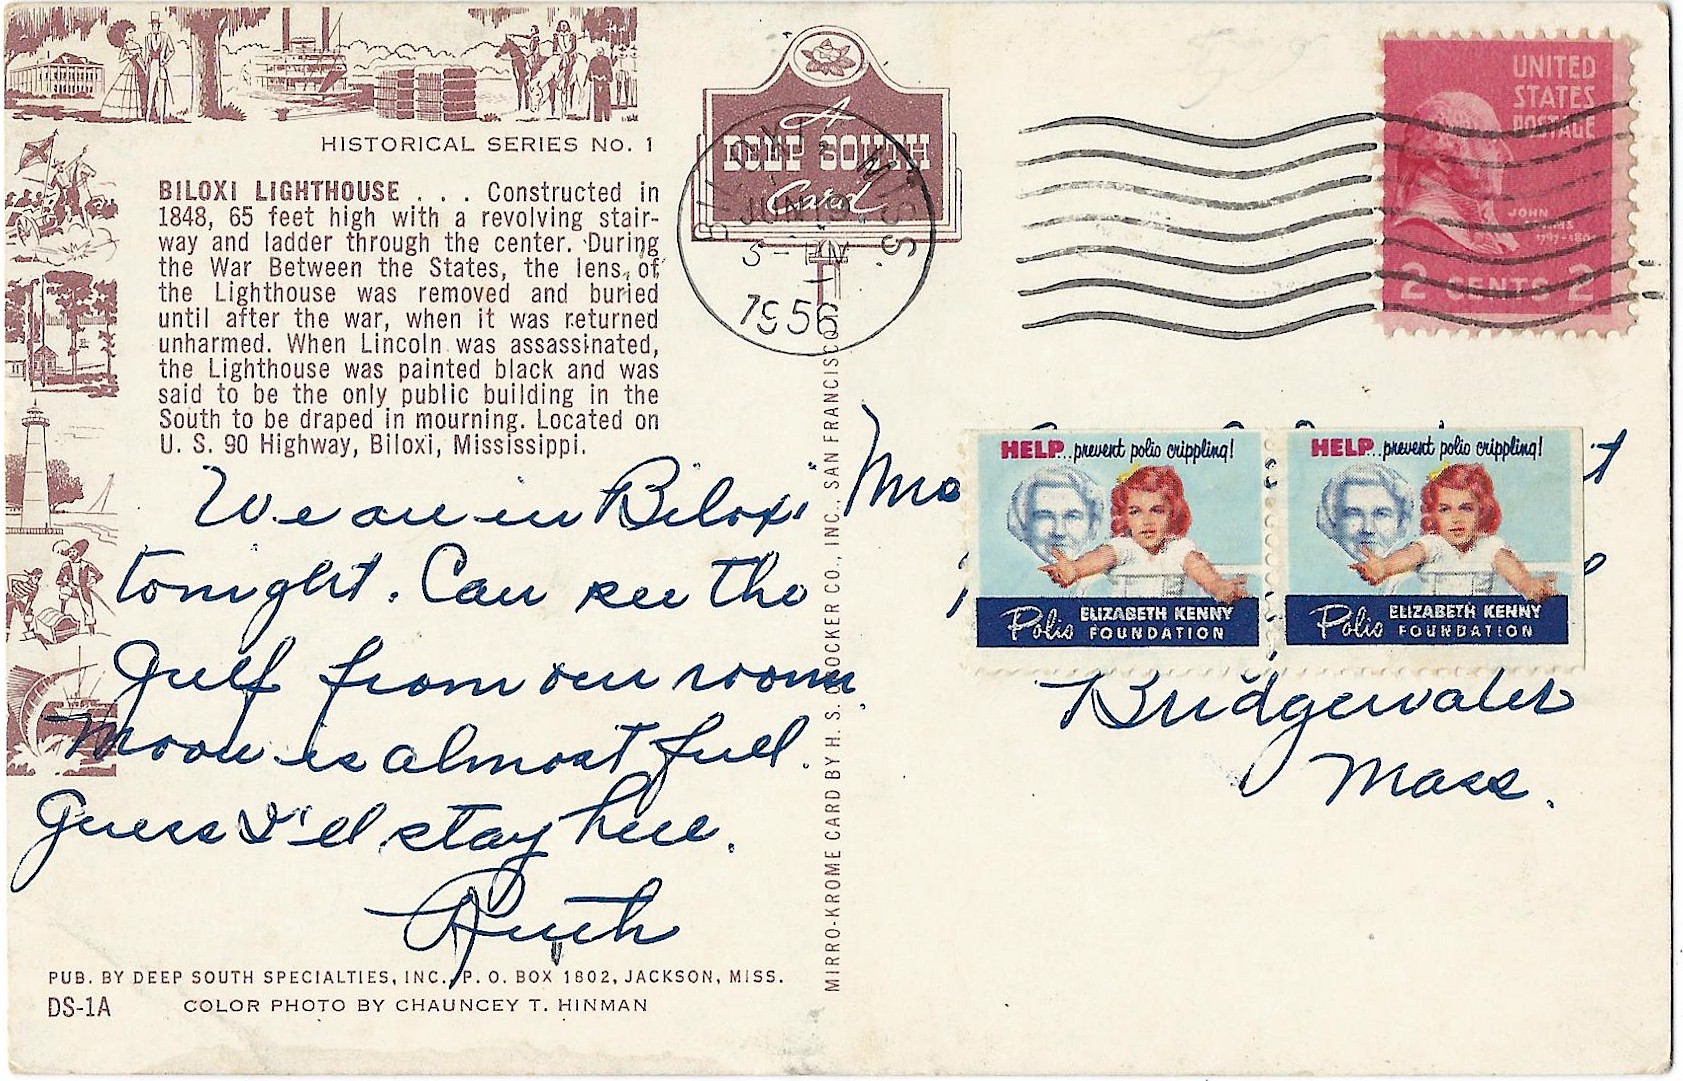 HISTORICAL SERIES No. 1
BILOXI LIGHTHOUSE . . . Constructed in
1848, 65 feet high with a revolving stair-
way and ladder through the center. During
the War Between the States, the lens of
the Lighthouse was removed and buried
until after the war, when it was returned
unharmed. When Lincoln was assassinated,
the Lighthouse was painted black and was
said to be the only public building in the
South to be draped in mourning. Located on
U. S. 90 Highway, Biloxi, Mississippi.
We are in Biloxi
tonight. Can see the
Gulf from our room.
Moon is almost full.
Guess I'll stay here.
Ruth
PUB. BY DEEP SOUTH SPECIALTIES, INC., P. O. BOX 1802, JACKSON, MISS.
DS-1A COLOR PHOTO BY CHAUNCEY T. HINMAN
A
DEEP SOUTH
Card
BILOXI, MISS.
JUN
1956
MIRRO-KROME CARD BY H. S. CROCKER CO., INC., SAN FRANCISCO
UNITED
STATES
POSTAGE
JOHN
ADAMS
2 CENTS 2
Mrs
HELP...prevent polio crippling!
Polio ELIZABETH KENNY
FOUNDATION
HELP...prevent polio crippling!
Polio ELIZABETH KENNY
FOUNDATION
Bridgewater
Mass.